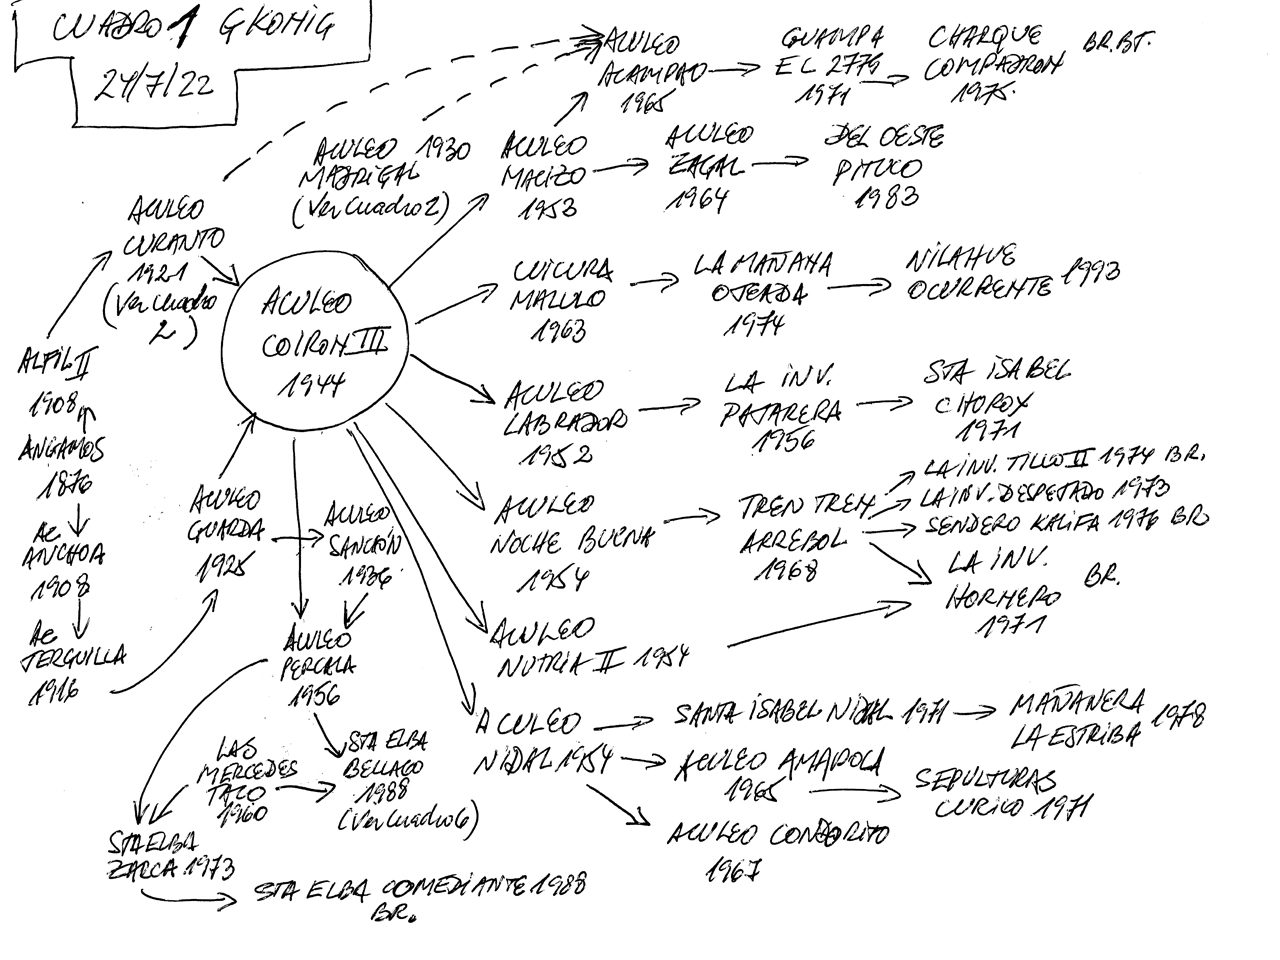 CUADRO 1 GKONIG
24/7/22
ACULEO
ACAMPAO
1965
GUAMPA
EL 2775
1971
CHARQUE
COMPADRON
1975.
BR.BT.
ACULEO 1930
MADRIGAL
(Ver Cuadro 2)
ACULEO
MACIZO
1953
ACULEO
ZAGAL
1964
DEL OESTE
PITUCO
1983
ACULEO
CURANTO
1921
(Ver Cuadro
2)
ACULEO
COIRON III
1944
CUICURA
MALULO
1963
LA MAÑANA
OJEADA
1974
NILAHUE
OCURRENTE 1993
ALFIL II
1908
ANGAMOS
1876
AC
ANCHOA
1908
AC
JERGUILLA
1916
ACULEO
LABRADOR
1952
LA INV.
PAJARERA
1956
STA ISABEL
CHOROY
1971
ACULEO
GUARDA
1925
ACULEO
SANCIÓN
1936
ACULEO
NOCHE BUENA
1954
TREN TREN
ARREBOL
1968
LA INV. TILLO II 1974 BR.
LA INV. DESPEJADO 1973
SENDERO KALIFA 1976 BR
LA INV.
HORNERO
1971
BR.
ACULEO
PERCALA
1956
ACULEO
NUTRIA II 1954
ACULEO
NIDAL 1954
SANTA ISABEL NIDAL 1971
MAÑANERA
LA ESTRIBA 1978
ACULEO AMAPOLA
1965
SEPULTURAS
CURICO 1971
ACULEO CONDORITO
1967
LAS
MERCEDES
TACO
1960
STA ELBA
BELLACO
1988
(Ver Cuadro 6)
STA ELBA
ZALCA 1973
STA ELBA COMEDIANTE 1988
BR.